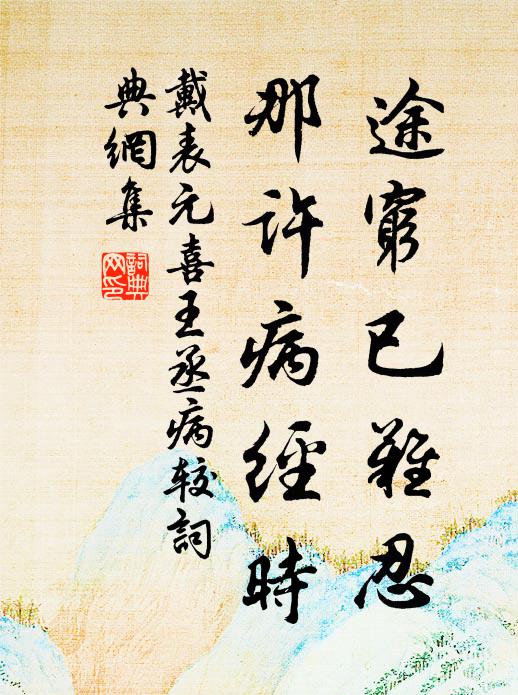 途窮已難忍
那許病經時
戴表元喜王丞病較詞
典網集
詞典
网印